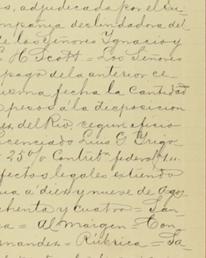 s, adjudicada por el Su-
ompania deslindadora del
de los Señores Ignacio y
H Scott = Los Señores
pago de la anterior ce
misma fecha la Cantidad
pesos a la disposicion
es del Rio, segun oficio
icenciado Luis G Trigo
25% Contrib. federal
fectos legales estiendo
ua a diez y nueve de Ago
chenta y cuatro = Jan
a = Al margen = Con
rnandez = Rubrica = Ja